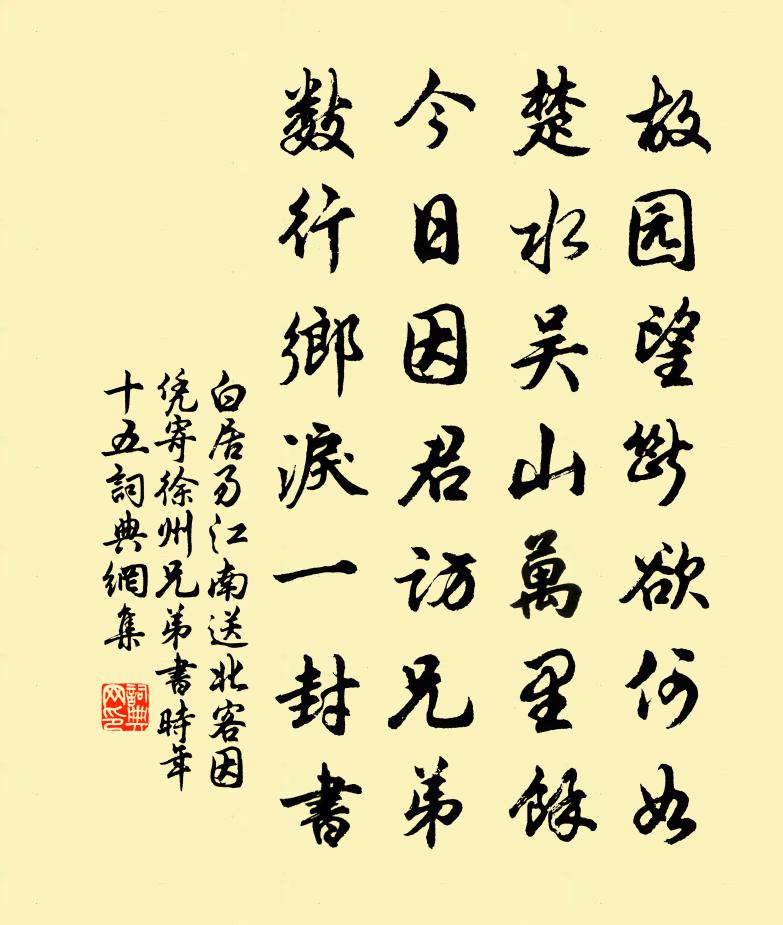 故园望断欲何如
楚水吴山萬里餘
今日因君访兄弟
数行鄉淚一封書
白居易江南送北客因
凭寄徐州兄弟書時年
十五詞典網集
詞典
网印